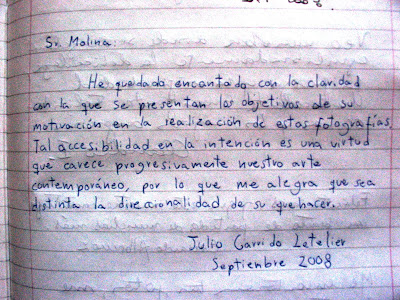 Sr. Molina:
He quedado encantado con la claridad
con la que se presentan los objetivos de su
motivación en la realización de estas fotografías.
Tal accesibilidad en la intención es una virtud
que carece progresivamente nuestro arte
contemporáneo, por lo que me alegra que sea
distinta la direccionalidad de su quehacer.
Julio Garrido Letelier
Septiembre 2008